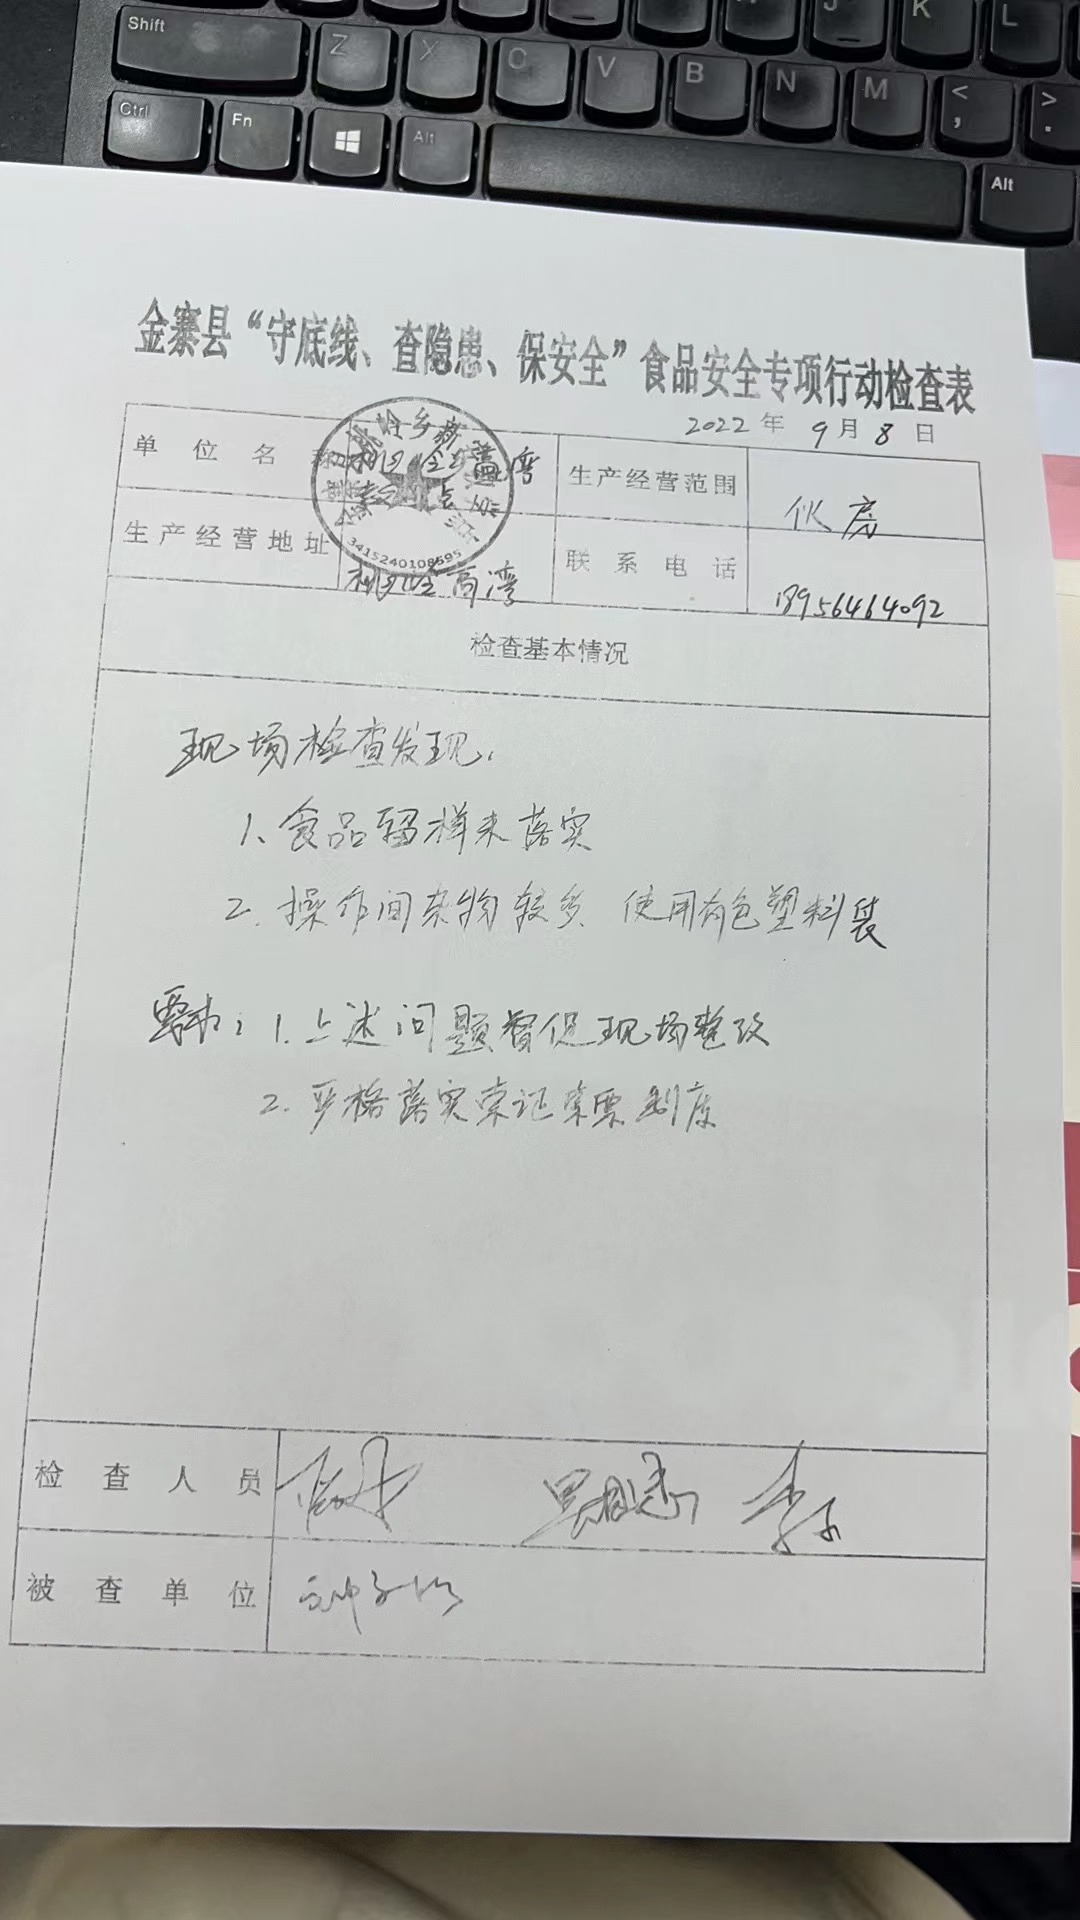 Shift Z X C V B N M < , > .
Ctrl Fn Alt Alt
J K L
金寨县“守底线、查隐患、保安全”食品安全专项行动检查表
2022年9月8日
单位名称
生产经营范围 伙房
生产经营地址 高湾
联系电话 18956464092
3415240108595
检查基本情况
现场检查发现:
1、食品留样未落实
2、操作间杂物较多、使用有色塑料袋
要求:1.上述问题督促现场整改
2.严格落实索证索票制度
检查人员
被查单位